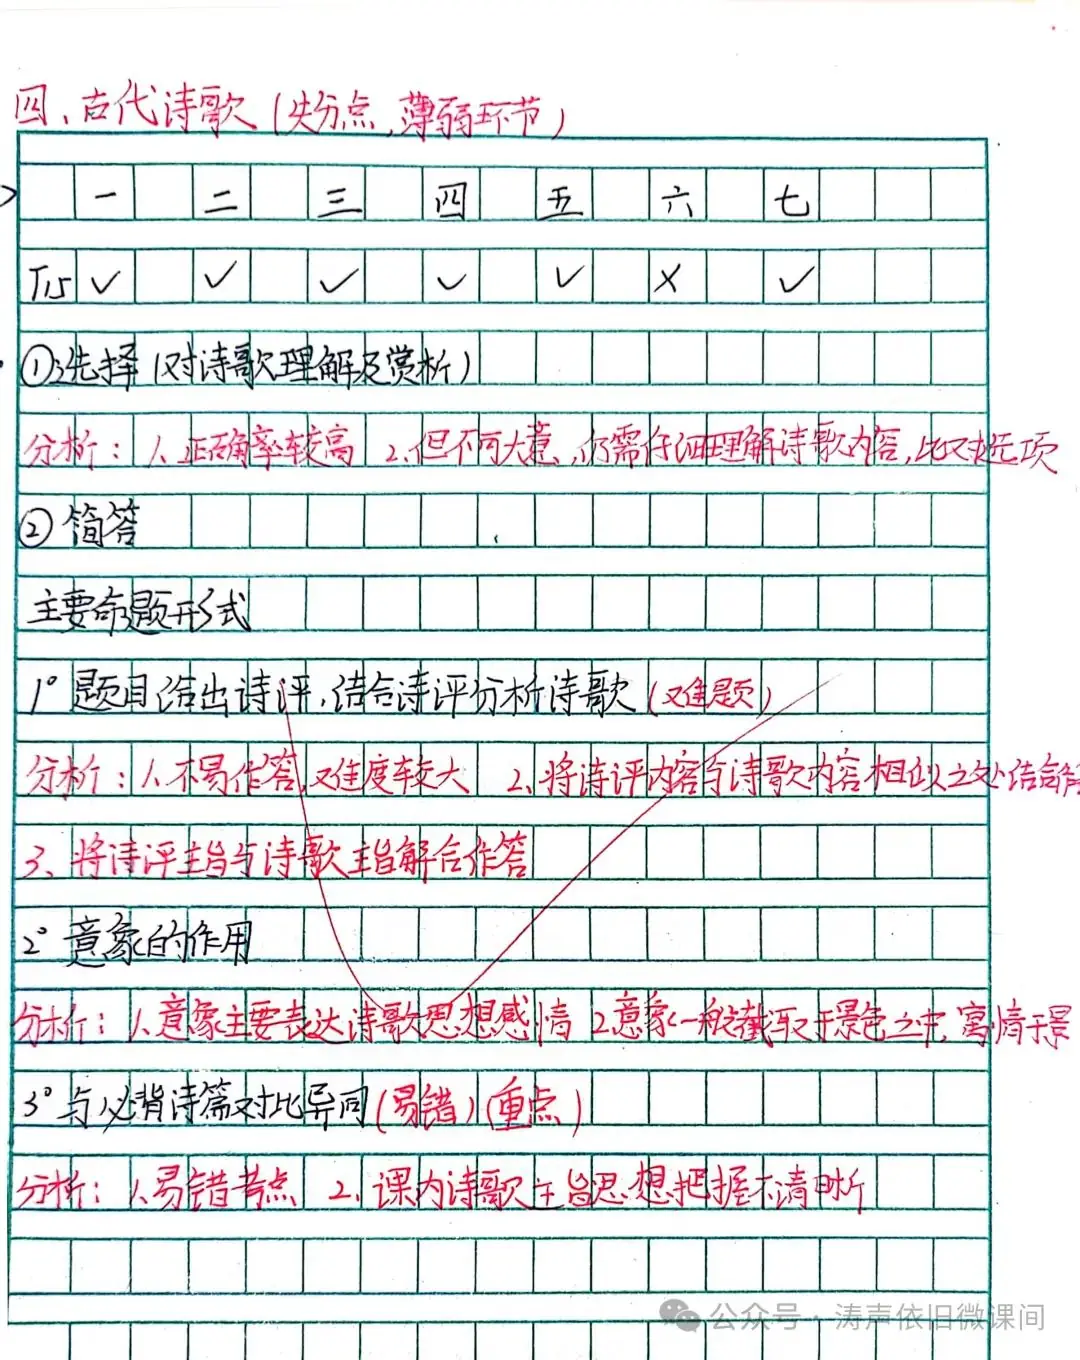 四、古代诗歌(失分点,薄弱环节)
一 二 三 四 五 六 七
T15 ✓ ✓ ✓ ✓ ✓ × ✓
①选择(对诗歌理解及赏析)
分析:1、正确率较高 2、但不可大意,仍需仔细理解诗歌内容,比对选项
②简答
主要命题形式
1°题目给出诗评,结合诗评分析诗歌(难题)
分析:1、不易作答,难度较大 2、将诗评内容与诗歌内容相似之处结合
3、将诗评主旨与诗歌主旨解合作答
2°意象的作用
分析:1、意象主要表达诗歌思想感情 2、意象一般截取于景色之中,寓情于景
3°与必背诗篇对比异同(易错)(重点)
分析:1、易错考点 2、课内诗歌主旨思想把握不清晰
公众号·涛声依旧微课间